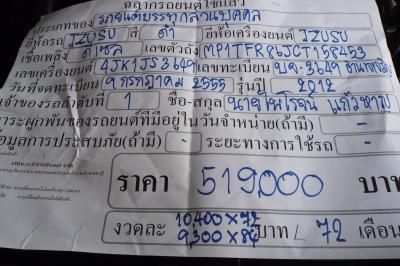 ฉลากรถยนต์ใช้แล้ว
ประเภทของ รถยนต์บรรทุกส่วนบุคคล
ยี่ห้อรถ IZUSU สี ดำ ยี่ห้อเครื่องยนต์ IZUSU
เชื้อเพลิง ดีเซล เลขตัวถัง MP1TFR86JCT158453
เลขเครื่องยนต์ 4JK1JS3649 เลขทะเบียน บจ-3649
วันที่จดทะเบียน 9 กรกฎาคม 2555 รุ่นปี 2012
เจ้าของรถลำดับที่ 1 ชื่อ-สกุล นาย
ภาระผูกพันของรถยนต์ที่มีอยู่ในวันจำหน่าย(ถ้ามี) -
ข้อมูลการประสบภัย(ถ้ามี) - ระยะทางการใช้รถ -
ราคา 519,000 บาท
งวดละ 10,400 x 72 บาท / 72 เดือน
9,300 x 84